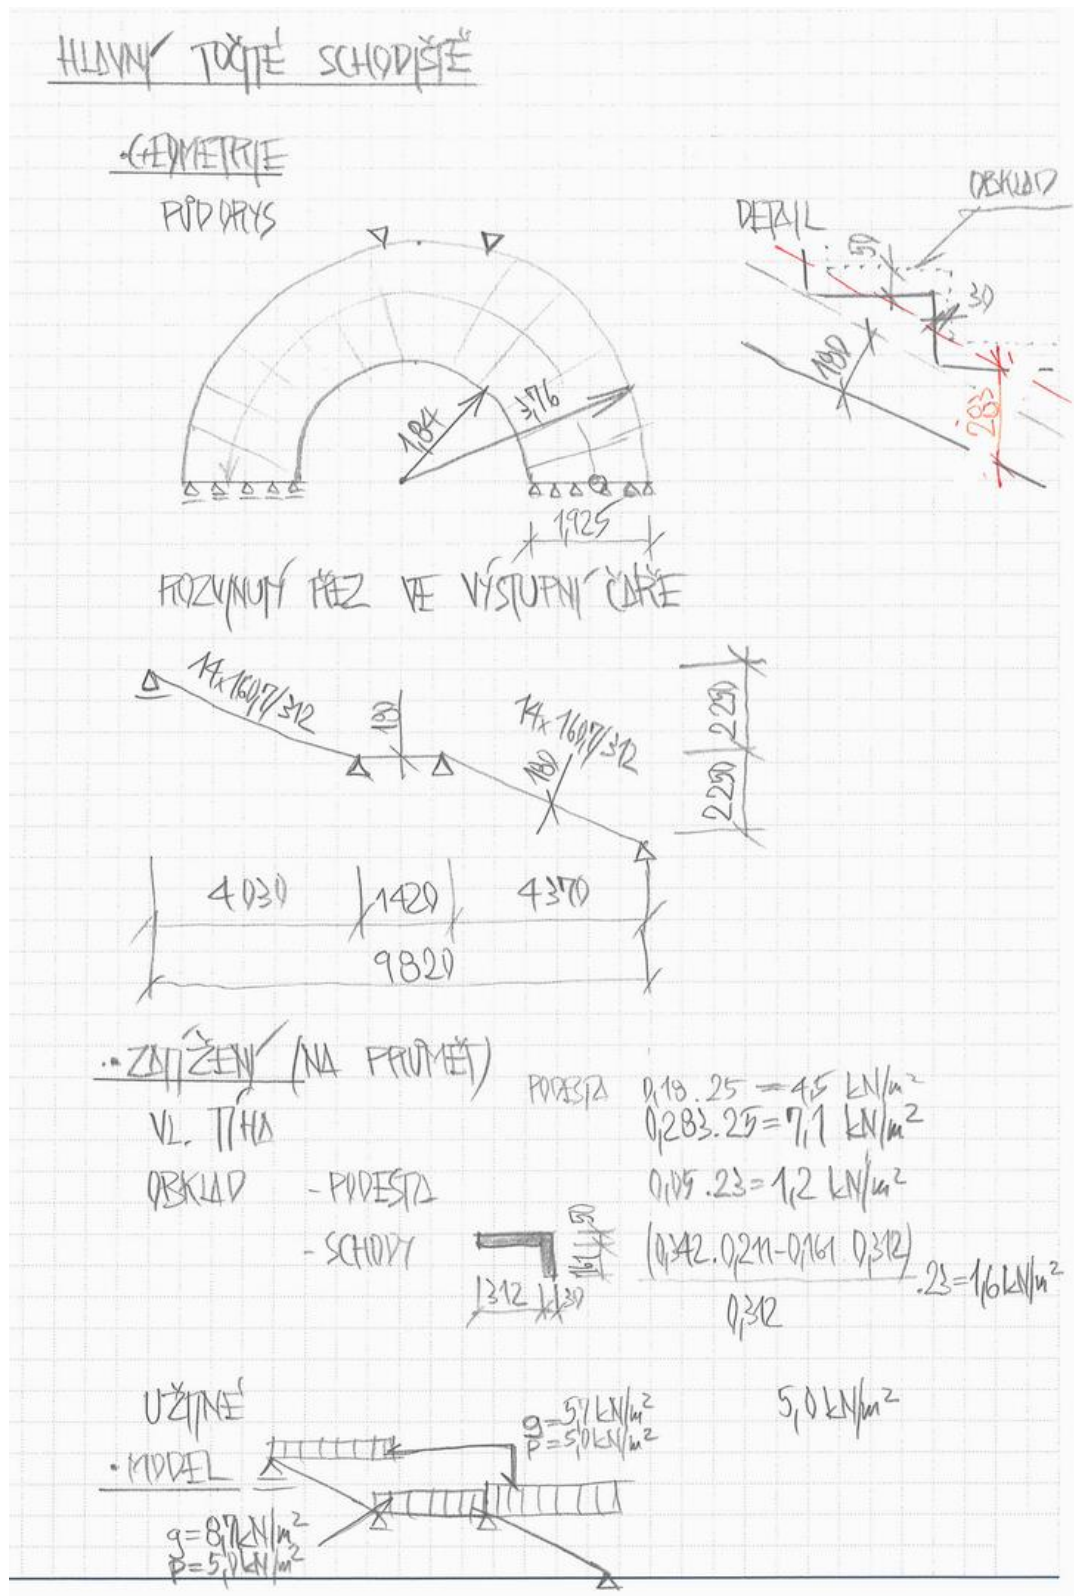 HLAVNÍ TOČITÉ SCHODIŠTĚ
• GEOMETRIE
PŮDORYS
DETAIL
OBKLAD
50
30
180
283
1,84
3,76
1,925
ROZVINUTÝ ŘEZ VE VÝSTUPNÍ ČÁŘE
14x160,7/312
180
14x160,7/312
180
2250
2250
4030
1420
4370
9820
• ZATÍŽENÍ (NA PRŮMĚT)
VL. TÍHA
PODESTA 0,18.25=4,5 kN/m²
0,283.25=7,1 kN/m²
OBKLAD - PODESTA 0,05.23=1,2 kN/m²
- SCHODY
50
161
312
30
(0,342.0,211-0,161.0,312)
0,312
.23=1,6kN/m²
UŽITNÉ 5,0 kN/m²
g=5,7 kN/m²
p=5,0kN/m²
• MODEL
g=8,7kN/m²
p=5,0kN/m²